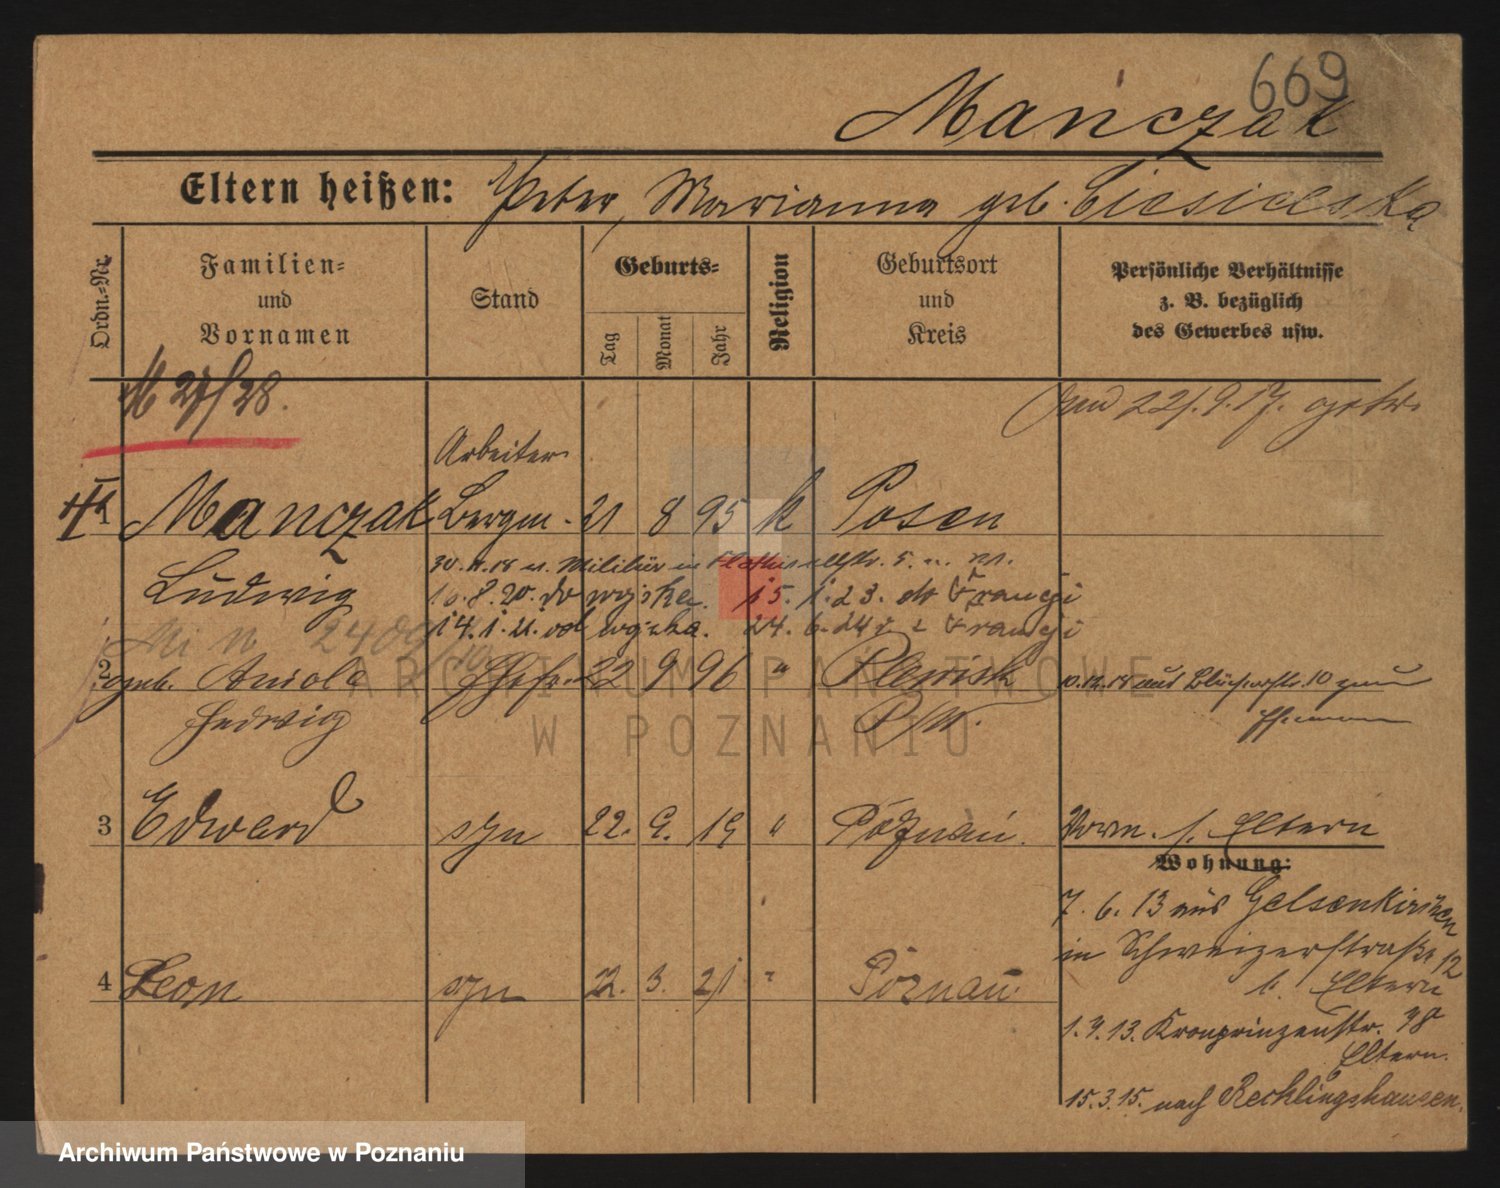 669
Mańczak
Eltern heißen: Peter, Marianna geb. Ciesielska
Ordn.-Nr.
Familien-
und
Vornamen
Stand
Geburts-
Tag
Monat
Jahr
Religion
Geburtsort
und
Kreis
Persönliche Verhältnisse
z. B. bezüglich
des Gewerbes usw.
M 27/28.
22/.9.17.
Arbeiter
1 Mańczak Bergm. 21 8 95 k Posen
Ludwig
30.11.18 v. Militär in
10.8.20. do wojska. 15.1.23. do Francji
14.1.21. od wojska. 24.6.24 z Francji
2 geb. Aniola Ehefr. 22 9 96 " Plewisk
Hedwig P/W.
10.12.18 aus Blücherstr. 10
Ehemann
3 Edward syn 22. 9. 19 " Poznań.
Vorm. s. Eltern
Wohnung:
7. 6. 13 aus Gelsenkirchen
in Schweizerstraße 12
b. Eltern
4 Leon syn 22. 3. 21 " Poznań.
1.9.13. Kronprinzenstr. 98
Eltern.
15.3.15. nach Recklingshausen.
ARCHIWUM PAŃSTWOWE
W POZNANIU
Archiwum Państwowe w Poznaniu